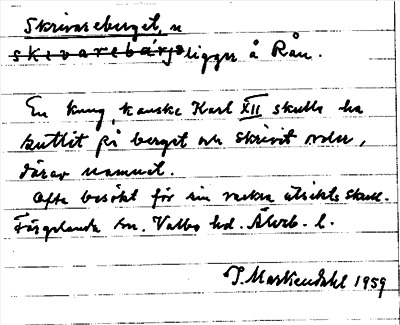 Skrivareberget, n
skrivarebärje ligger å Rån.
En kung, kanske Karl XII skulle ha
suttit på berget och skrivit order,
därav namnet.
Ofta besökt för sin vackra utsikts skull.
Färgelanda sn. Valbo hd. Älvsb. l.
J. Markendahl 1959